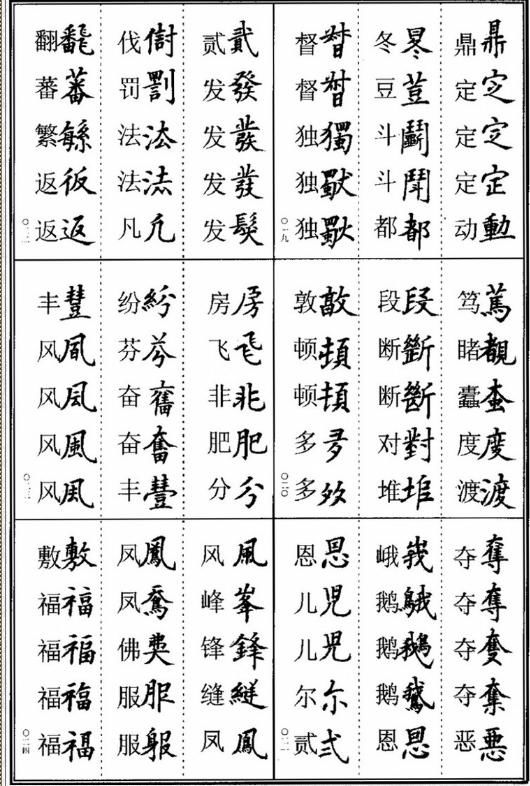 鼎鼎 定㝎 定㝎 定定 动動
冬 豆荳 斗鬭 斗鬥 都都
督 督 独獨 独 独
〇一九
笃篤 睹覩 蠹 度度 渡渡
段段 断斷 断 对對 堆
敦敦 顿頓 顿頓 多多 多
〇二〇
夺奪 夺奪 夺 夺奪 恶悪
峨峩 鹅 鹅鵝 鹅 恩恩
恩恩 儿児 儿児 尔尓 贰弍
〇二一
贰貳 发發 发發 发發 发髮
伐 罚罰 法法 法法 凡凡
翻飜 蕃蕃 繁 返仮 返返
〇二二
房房 飞飛 非非 肥肥 分分
纷紛 芬芬 奋奮 奋奮 丰豐
丰豐 风凬 风 风風 风風
〇二三
风風 峰峯 锋鋒 缝縫 凤鳳
凤鳳 凤 佛 服服 服
敷敷 福福 福福 福福 福福
〇二四